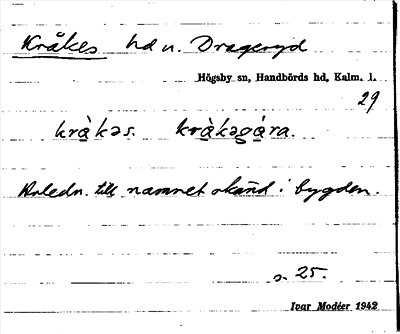 Kråkes hd u. Drageryd
Högsby sn, Handbörds hd, Kalm. l.
29
krà̱kəs. krà̱kəgá̱ra.
Anledn. till namnet okänd i bygden.
s. 25.
Ivar Modéer 1942